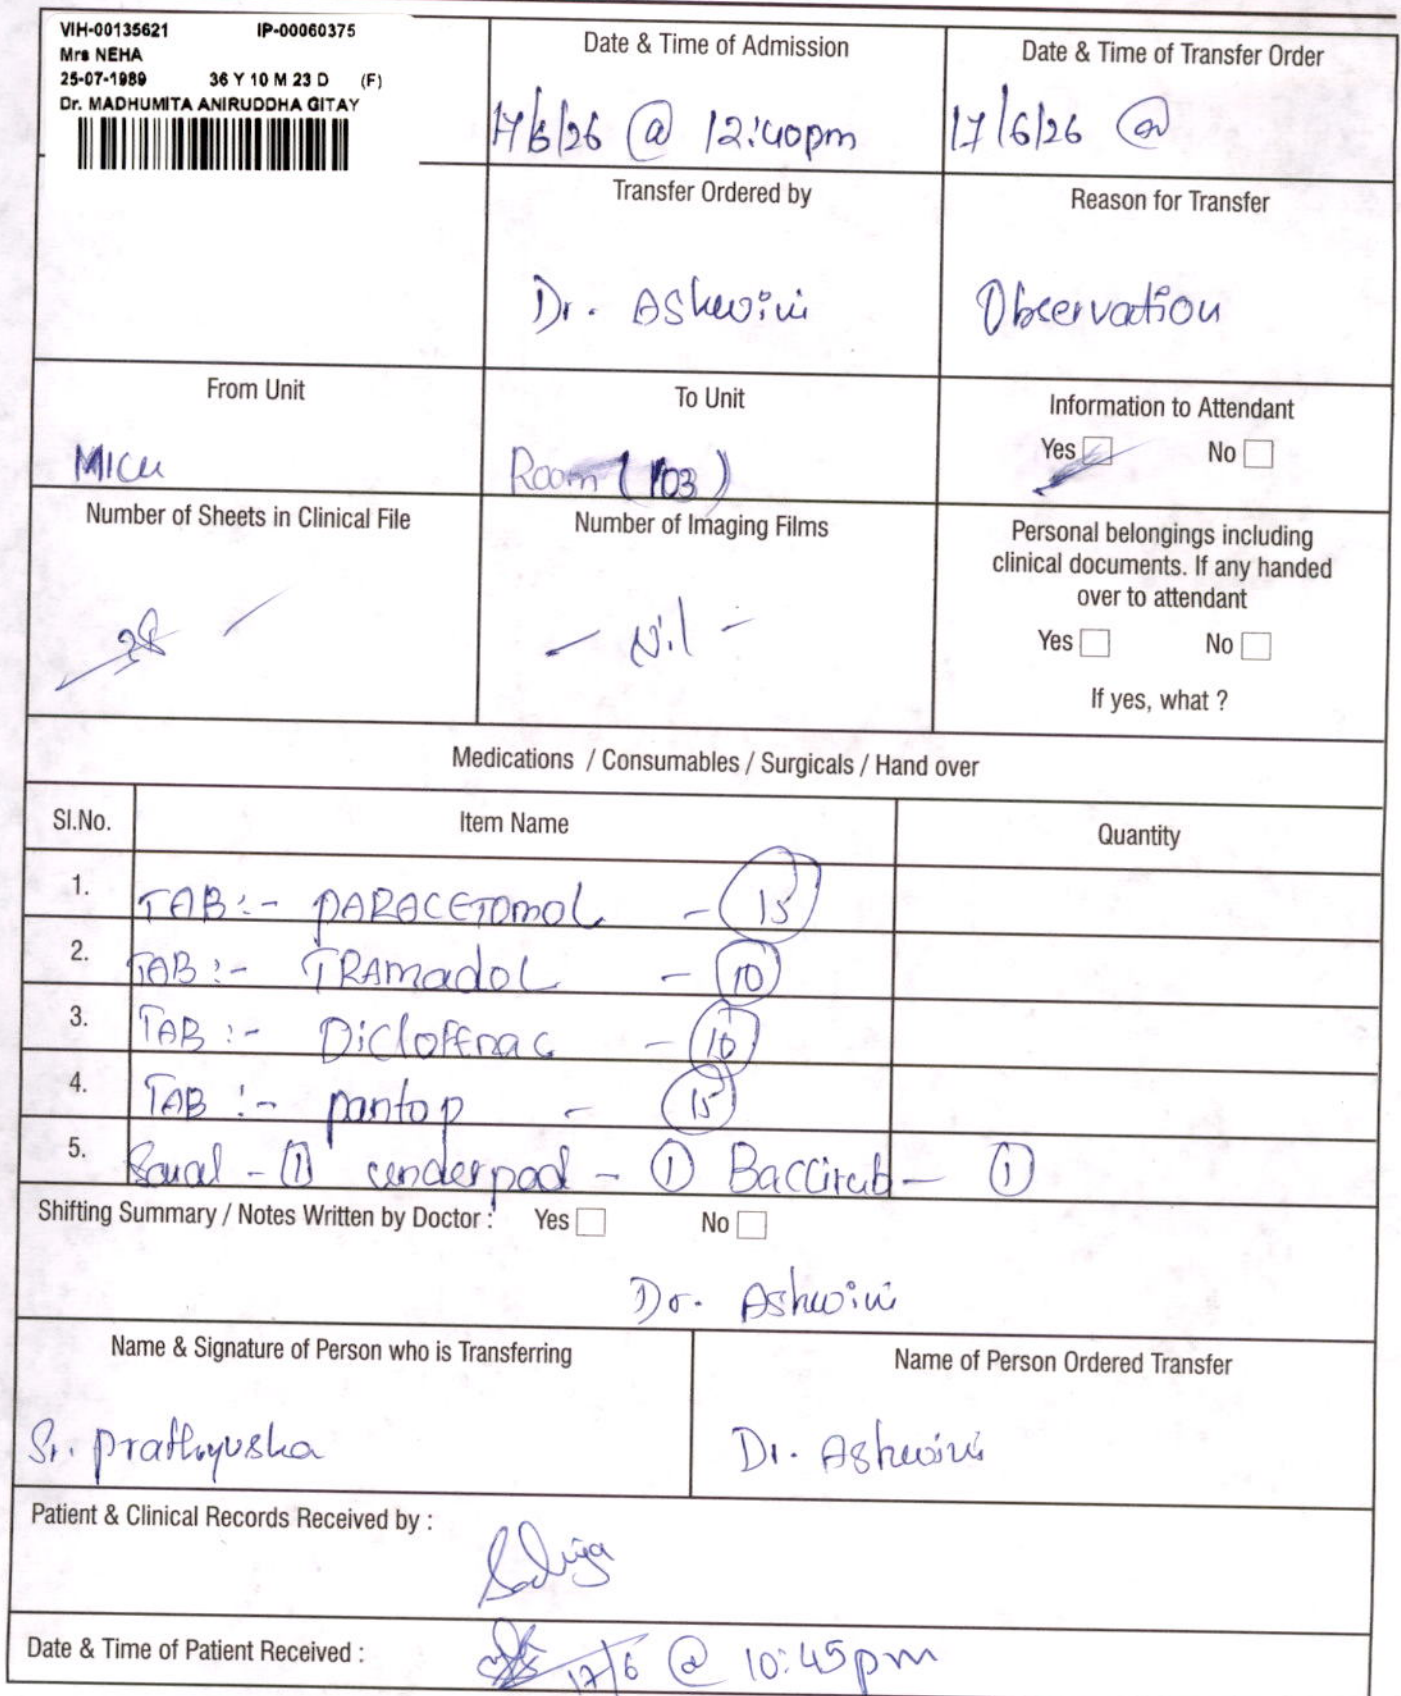 VIH-00135621 IP-00060375
Mrs NEHA
25-07-1989 36 Y 10 M 23 D (F)
Dr. MADHUMITA ANIRUDDHA GITAY
Date & Time of Admission
17/6/26 @ 12:40pm
Date & Time of Transfer Order
17/6/26 @
Transfer Ordered by
Dr. Ashwini
Reason for Transfer
Observation
From Unit
MICU
To Unit
Room (103)
Information to Attendant
Yes No
Number of Sheets in Clinical File
28
Number of Imaging Films
- Nil -
Personal belongings including
clinical documents. If any handed
over to attendant
Yes No
If yes, what ?
Medications / Consumables / Surgicals / Hand over
Sl.No. Item Name Quantity
1. TAB:- PARACETOMOL - 15
2. TAB:- TRAmadoL - 10
3. TAB:- Dicloffnac - 10
4. TAB:- pantop - 15
5. - 1 underpad - 1 Baccirub - 1
Shifting Summary / Notes Written by Doctor : Yes No
Dr. Ashwini
Name & Signature of Person who is Transferring
Sr. prathyusha
Name of Person Ordered Transfer
Dr. Ashwini
Patient & Clinical Records Received by :
Date & Time of Patient Received :
17/6 @ 10:45pm